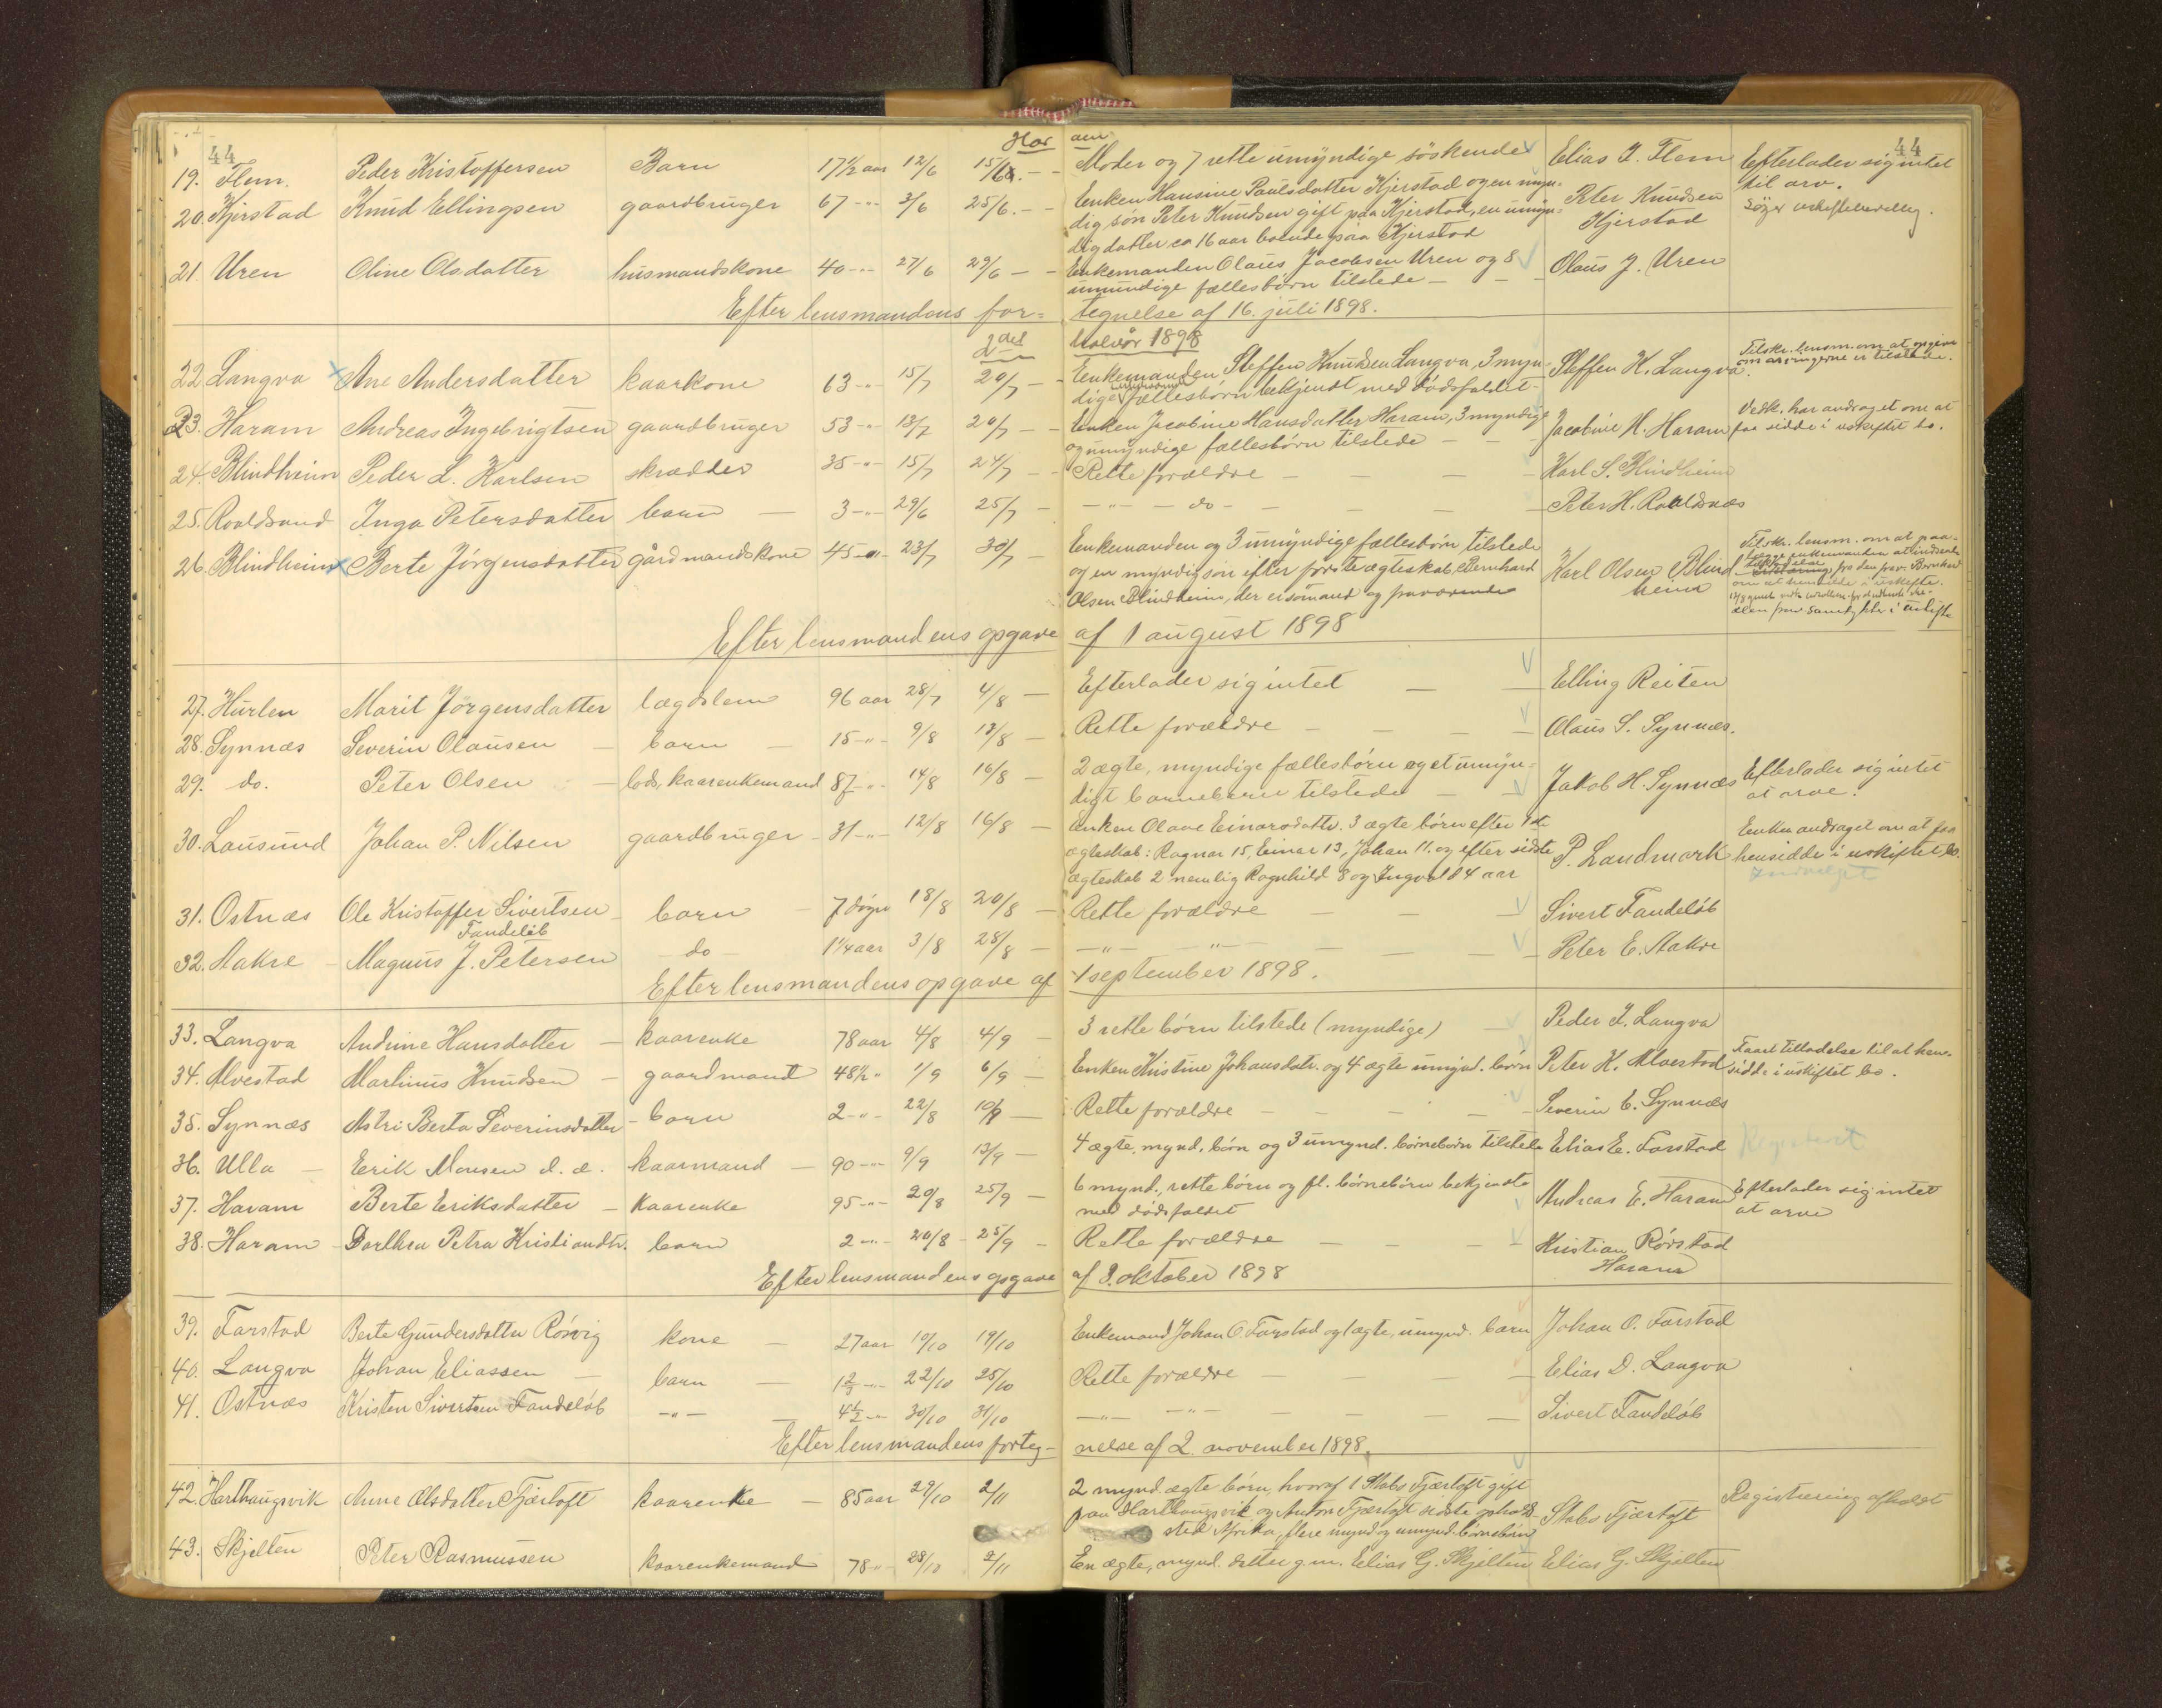 44 Har am 44
19. Flem. Peder Kristoffersen Barn 17 1/2 aar 12/6 15/6. - - Moder og 7 rette umyndige söskende Elias J. Flem Efterlader sig intet
til arv.
20. Kjerstad Knud Ellingsen gaardbruger 67 -"- 3/6 25/6. - - Enken Hansine Paulsdatter Kjerstad og en myn-
dig søn Peter Knudsen gift paa Kjerstad, en umyn- Peter Knudsen Søger uskiftebevillg.
dig datter ca 16 aar boende paa Kjerstad Kjerstad
21. Uren Oline Olsdatter husmandskone 40 -"- 27/6 29/6 - - Enkemanden Olaus Jacobsen Uren og 8 Olaus J. Uren
umundige fællesbørn tilstede -
Efter lensmandens for- tegnelse af 16. juli 1898.
2det halvår 1898
22. Langva Ane Andersdatter kaarkone 63 -"- 15/7 20/7 - Enkemanden Steffen Knudsen Langva, 3 myn- Steffen K. Langva. Tilskr. lensm. om at opgive
om arvingerne er tilstede.
dige fællesbørn bekjendt med dödsfaldet -
23. Haram Andreas Ingebrigtsen gaardbruger 53 -"- 13/7 20/7 - - Enken Jacobine Hansdatter Haram, 3 myndige Jacobine H. Haram Vedk. har andraget om at
og umyndige fællesbörn tilstede - - faa sidde i uskiftet bo.
24. Blindheim Peder L. Karlsen skrædder 35 -"- 15/7 24/7 - - Rette forældre - - - Karl S. Blindheim
25. Roaldsund Inga Petersdatter barn - 3 -"- 29/6 25/7 - -"- - do - - - - - Peter H. Roaldsnæs
26. Blindheim Berte Jörgensdatter gårdmandskone 45 -"- 23/7 30/7 - Enkemanden og 3 umyndige fællesbørn tilstede Tilskr. lensm. om at paa-
og en myndig søn efter første ægteskab, Bernhard Karl Olsen Blind
Olsen Blindheim, der er sömand og fraværende heim
Efter lensmandens opgave af 1 august 1898
27. Hurlen Marit Jörgensdatter lægdslem 96 aar 28/7 4/8 - Efterlader sig intet - - Elling Reiten
28. Synnæs Severin Olausen - barn - 15 -"- 9/8 13/8 - Rette forældre - - - Olaus S. Synnæs.
29. do. Peter Olsen - lods, kaarenkemand 87 -"- 14/8 16/8 - 2 ægte, myndige fællesbörn og et umyn- Jakob H. Synnæs Efterlader sig intet
digt barnebarn tilstede - - at arve.
30. Lausund Johan P. Nilsen gaardbruger - 31 -"- 12/8 16/8 - Enken Olave Einarsdattr. 3 ægte børn efter 1ste
ægteskab: Ragnar 15, Einar 13, Johan 11. og efter sidste P. Landmark Enken andraget om at faa
hensidde i uskiftet bo.
ægteskab 2 nemlig Ragnhild 8 og Ingvald 4 aar
31. Ostnæs Ole Kristoffer Sivertsen - barn - 7 døgn 18/8 20/8 - Rette forældre - - - Sivert Fandelöb
Fandelöb
32. Aakre - Magnus J. Petersen - do - 1 1/4 aar 3/8 28/8 - -"- -"- - - - Peter E. Aakre
Efter lensmandens opgave af 1 september 1898.
33. Langva Andrine Hansdatter - kaarenke 78 aar 4/8 4/9 - 3 rette börn tilstede (myndige) - Peder J. Langva
34. Alvestad Martinus Knudsen - gaardmand 48 1/2 " 1/9 6/9 - Enken Kristine Johansdatr. og 4 ægte umynd. børn Peter K. Alvestad Faaet tilladelse til at hen-
sidde i uskiftet bo.
35. Synnæs Astri Berta Severinsdatter - barn 2 -"- 22/8 10/9 - Rette forældre - - - - - Severin E. Synnæs
36. Ulla - Erik Monsen d. æ. kaarmand - 90 -"- 9/9 13/9 - 4 ægte, mynd. børn og 3 umynd. børnebørn tilstede Elias E. Farstad Registrert
37. Haram Berte Eriksdatter - Kaarenke 95 -"- 20/8 25/9 - 6 mynd., rette børn og fl. børnebørn bekjendte Andreas E. Haram Efterlader sig intet
med dödsfaldet at arve
38. Haram - Dorthea Petra Kristiandtr. barn 2 -"- 20/8 - 25/9 - Rette forældre - - - Kristian Rörstad
Haram
Efter lensmandens opgave af 3. oktober 1898
39. Farstad Berte Gundersdatter Rösvig kone - 27 aar 10/10 19/10 Enkemand Johan O. Farstad og 1 ægte, umynd. barn Johan O. Farstad
40. Langva Johan Eliassen - barn - 1 2/3 -"- 22/10 25/10 Rette forældre - - - - Elias D. Langva
41. Ostnæs Kristen Sivertsen Fandelöb -"- - 4 1/2 -"- 30/10 31/10 -"- -"- - - - - Sivert Fandelöb
Efter lensmandens forteg- nelse af 2. november 1898.
42. Harthaugsvik Anne Olsdatter Fjærtoft kaarenke - 85 aar 29/10 2/11 2 mynd. ægte børn, hvoraf 1 Stabs Fjærtoft gift Registrering afholdt
paa Harthaugsvik og Anton Fjærtoft sidste opholds- Stabs Fjærtoft
sted Afrika, flere mynd. og umynd. börnebörn
43. Skjelten Peter Rasmussen kaarenkemand 78 -"- 28/10 2/11 En ægte, mynd. datter g. m. Elias G. Skjelten Elias G. Skjelten